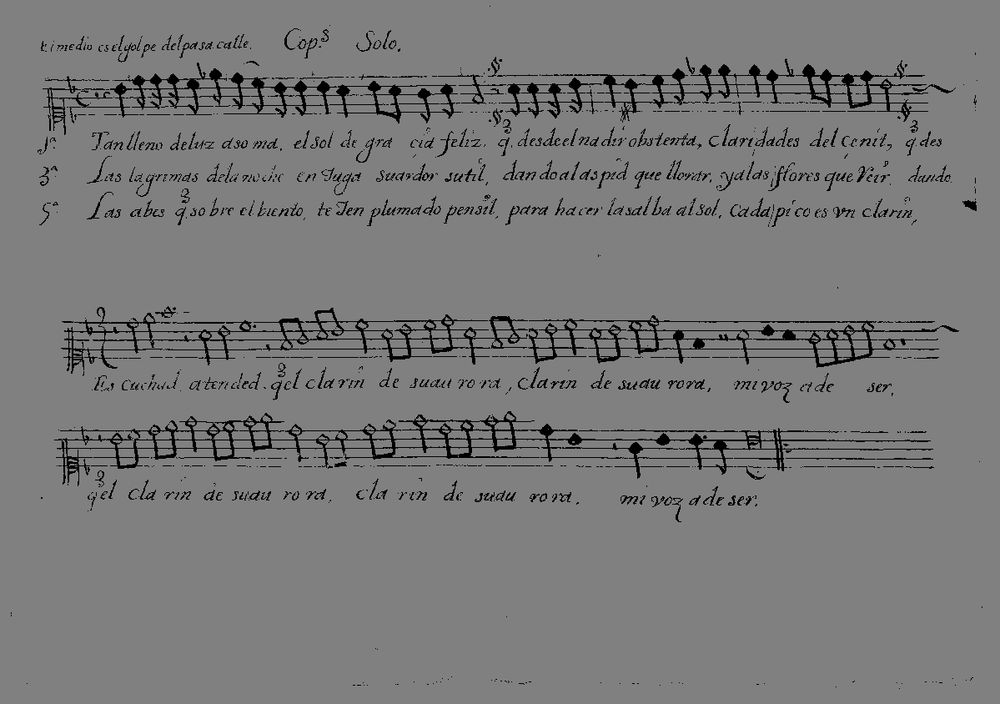 el medio es el golpe del pasacalle. Cop.s Solo.
1ª Tan lleno de luz asoma, el sol de gracia feliz. q̃ desde el nadir obstenta, claridades del Cenit, q̃ des
3ª Las lagrimas dela noche enJuga su ardor sutil, dando al aspid que llorar, y a las flores que Reir. dando
5ª Las abes q̃ sobre el biento, teJen plumado pensil, para hacer la salba al sol, Cada pico es vn clarin,
Escuchad, atended. q̃ el clarin de suau rora, clarin de suau rora, mi voz a de ser.
q̃ el clarin de suau rora, clarin de suau rora, mi voz a de ser.